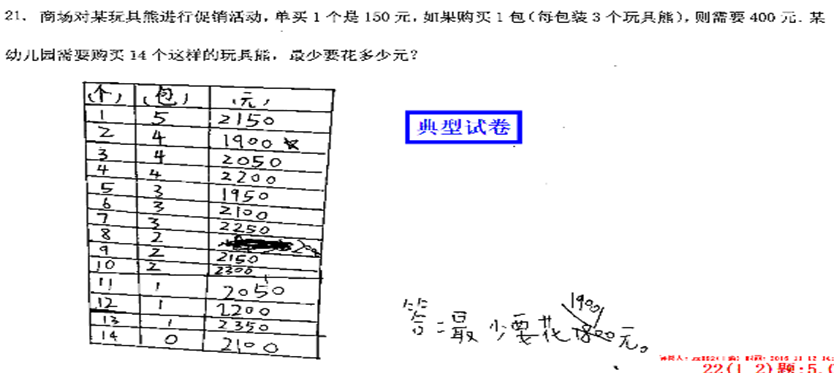 21. 商场对某玩具熊进行促销活动,单买1个是150元,如果购买1包(每包装3个玩具熊),则需要400元.某
幼儿园需要购买14个这样的玩具熊,最少要花多少元?
(个) (包) (元)
1 5 2150
2 4 1900
3 4 2050
4 4 2200
5 3 1950
6 3 2100
7 3 2250
8 2
9 2 2150
10 2 2300
11 1 2050
12 1 2200
13 1 2350
14 0 2100
典型试卷
1900
答:最少要花1800元。
22(1_2)题:5.0